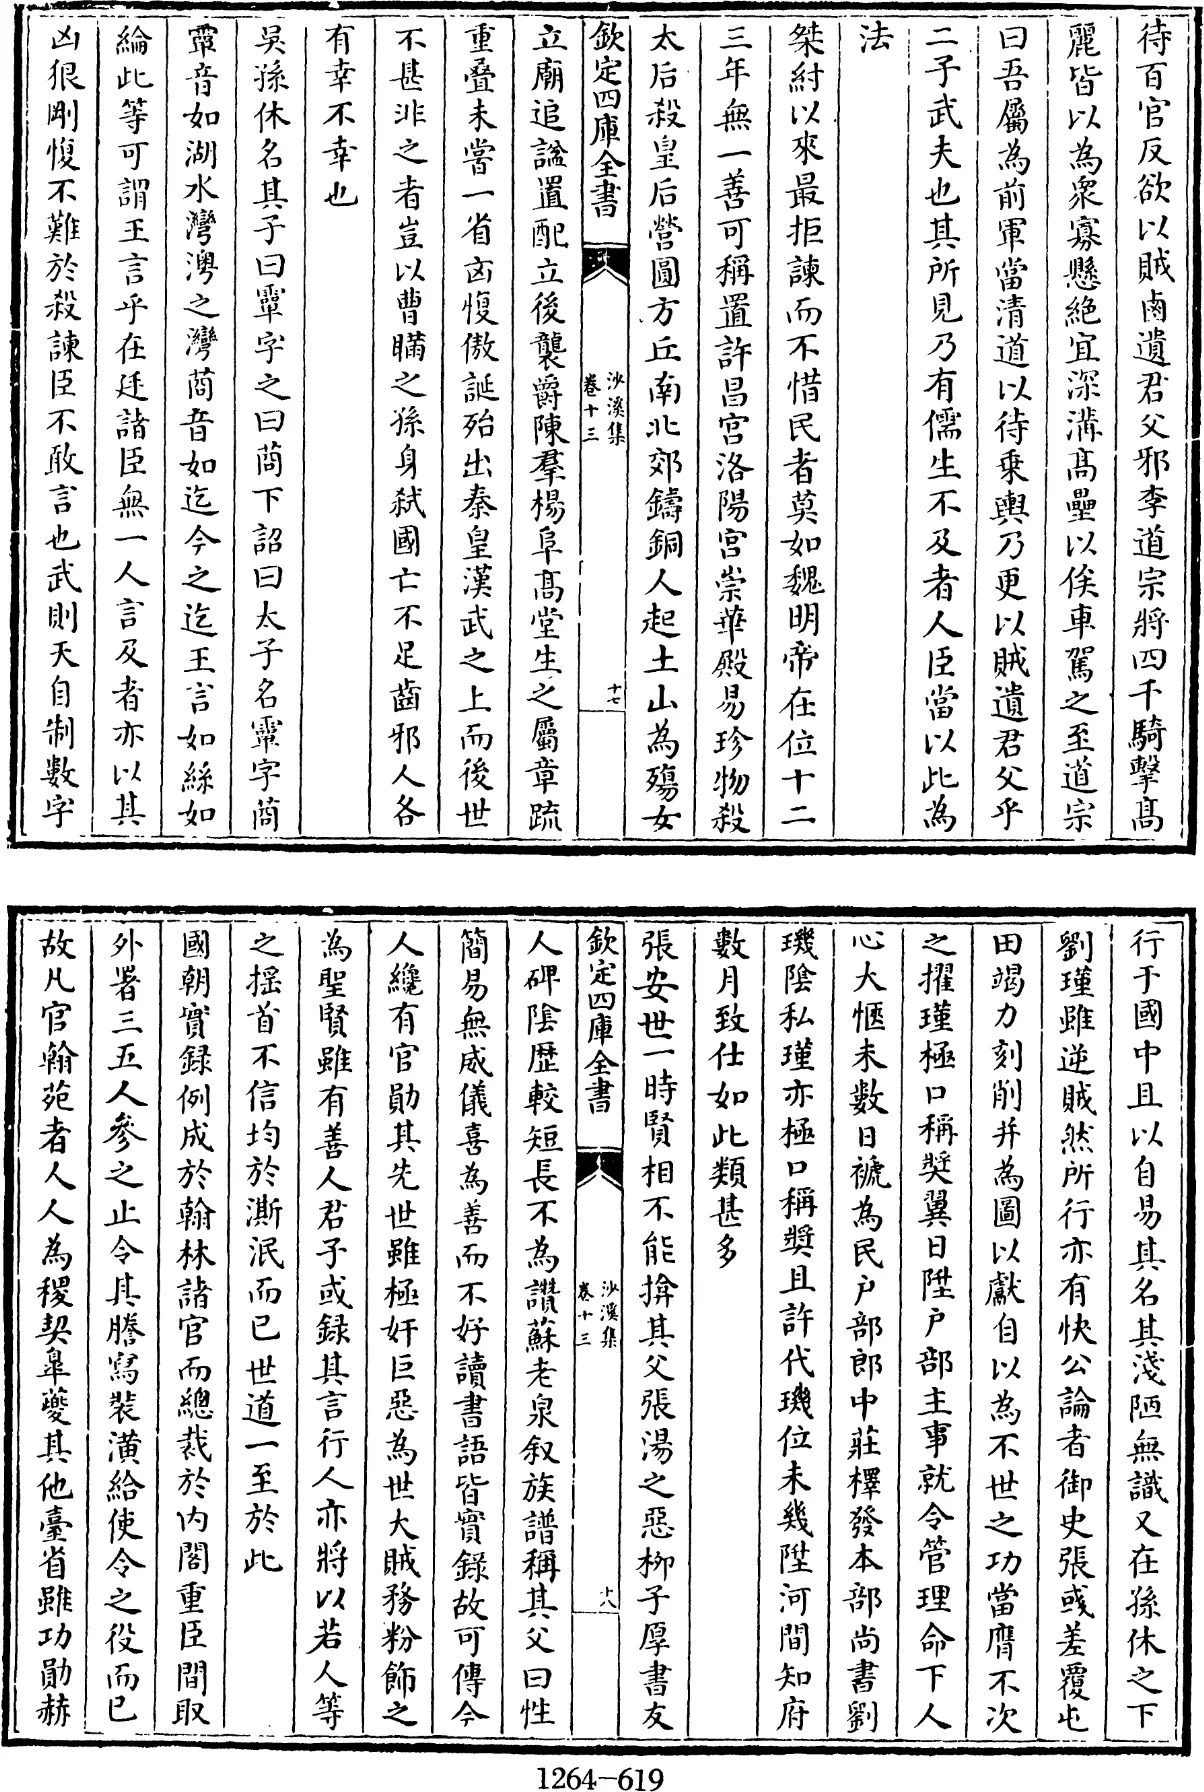 待百官反欲以賊鹵遺君父邪李道宗將四千騎擊髙
麗皆以為衆寡懸絶宜深溝髙壘以俟車駕之至道宗
曰吾屬為前軍當清道以待乗輿乃更以賊遺君父乎
二子武夫也其所見乃有儒生不及者人臣當以此為
法
桀紂以來最拒諫而不惜民者莫如魏明帝在位十二
三年無一善可稱置許昌宫洛陽宫崇華殿易珍物殺
太后殺皇后營圓方丘南北郊鑄銅人起土山為殤女
欽定四庫全書
沙溪集
卷十三
十七
立廟追諡置配立後襲爵陳羣楊阜髙堂生之屬章疏
重疊未嘗一省㐫愎傲誕殆出秦皇漢武之上而後世
不甚非之者豈以曹瞞之孫身弑國亡不足齒邪人各
有幸不幸也
吳孫休名其子曰𩅦字之曰𦯶下詔曰太子名𩅦字𦯶
𩅦音如湖水灣澳之灣𦯶音如迄今之迄王言如絲如
綸此等可謂王言乎在廷諸臣無一人言及者亦以其
凶狠剛愎不難於殺諫臣不敢言也武則天自制數字
行于國中且以自易其名其淺陋無識又在孫休之下
劉瑾雖逆賊然所行亦有快公論者御史張彧差覆屯
田竭力刻削并為圖以獻自以為不世之功當膺不次
之擢瑾極口稱奬翼日陞户部主事就令管理命下人
心大愜未數日褫為民户部郎中莊檡發本部尚書劉
璣隂私瑾亦極口稱奬且許代璣位未幾陞河間知府
數月致仕如此類甚多
張安世一時賢相不能揜其父張湯之惡柳子厚書友
欽定四庫全書
沙溪集
卷十三
十八
人碑隂歴較短長不為讚蘇老泉叙族譜稱其父曰性
簡易無威儀喜為善而不好讀書語皆實録故可傳今
人纔有官勛其先世雖極奸巨惡為世大賊務粉飾之
為聖賢雖有善人君子或録其言行人亦將以若人等
之揺首不信均於澌泯而已世道一至於此
國朝實録例成於翰林諸官而總裁於内閣重臣間取
外署三五人參之止令其謄寫裝潢給使令之役而已
故凡官翰苑者人人為稷契臯夔其他臺省雖功勛赫
1264-619